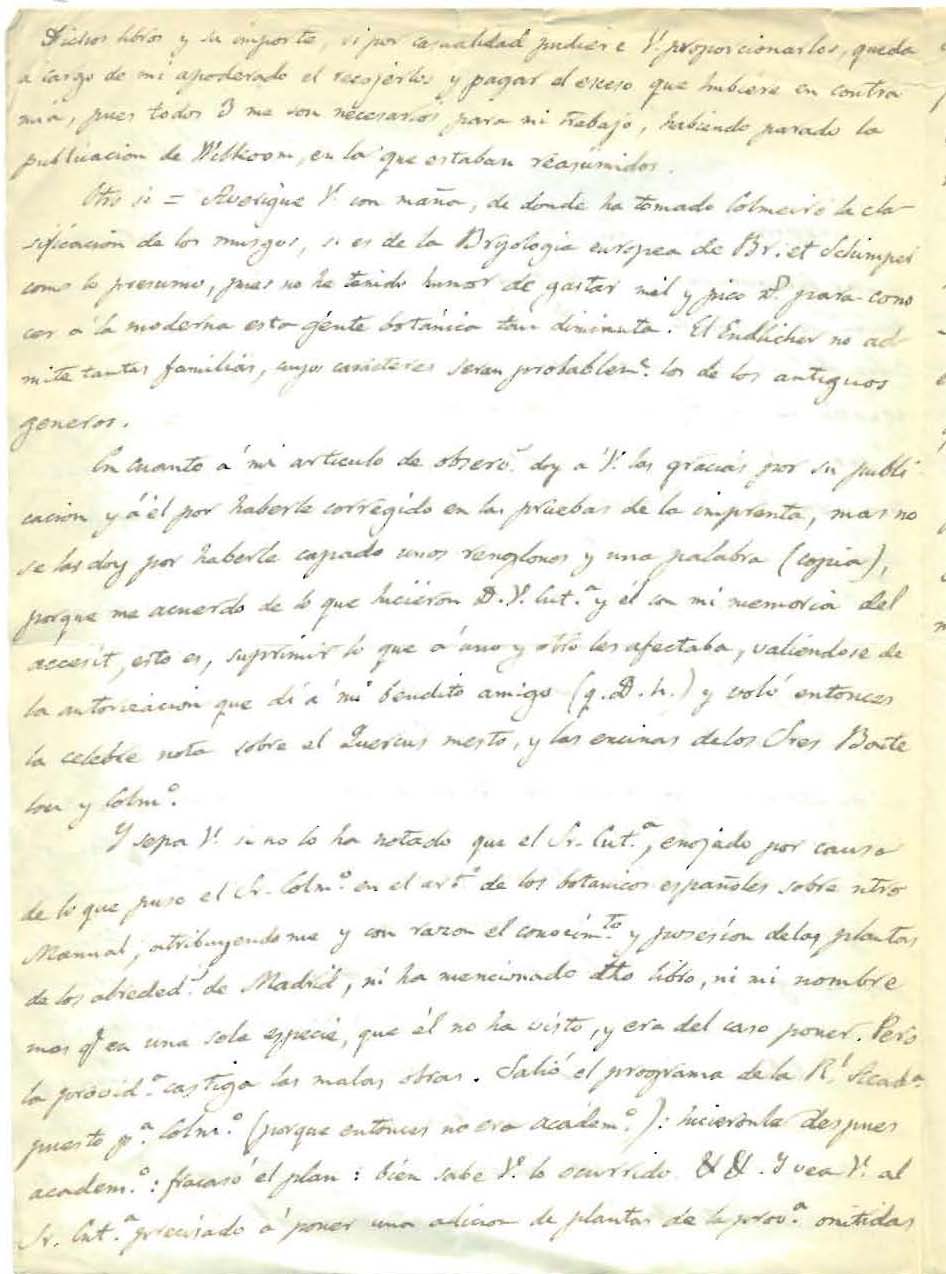 Dichos libros y su importe, si por casualidad pudiere V. proporcionarlos, queda
a cargo de mi apoderado el recojerlos y pagar el exceso que hubiere en contra
mia, pues todos 3 me son necesarios para mi trabajo, habiendo parado la
publicacion de Willkoom, en la que estaban reasumidos.
Otro si = Averigüe V. con maña, de donde ha tomado Colmeiro la cla-
sificacion de los musgos, si es de la Bryologia europea de Br. et Schimper
como lo presumo, pues no he tenido humor de gastar mil y pico rs. para cono
cer á la moderna esta gente botánica tan diminuta. El Endlicher no ad-
mite tantas familias, cuyos carácteres seran probablemte. los de los antiguos
generos.
En cuanto á mi articulo de observs. doy á V. las gracias por su publi
cacion y á él por haberle corregido en las pruebas de la imprenta, mas no
se las doy por haberle capado unos renglones y una palabra (copia),
porque me acuerdo de lo que hicieron D. V. Cut.ª y él con mi memoria del
accesit, esto es, suprimir lo que á uno y otro les afectaba, valiendose de
la autorizacion que dí á mi bendito amigo (q. D. h.) y voló entonces
la celebre nota sobre el Quercus mesto, y las encinas de los Sres Boute
lou y Colm.º
Y sepa V. si no lo ha notado que el Sr. Cut.ª, enojado por causa
de lo que puso el Sr. Colm.º en el art.º de los botanicos españoles sobre ntro
Manual, atribuyendome y con razon el conocim.to y posesion de las plantas
de los alreded.s de Madrid, ni ha mencionado dho libro, ni mi nombre
mas q en una sola especie, que él no ha visto, y era del caso poner. Pero
la provid.ª castiga las malas obras. Salió el programa de la R.l Acad.ª
puesto p.ª Colm.º (porque entonces no era académ.º): hicieronle despues
academ.º: fracasó el plan: bien sabe V. lo ocurrido && . Y vea V. al
Sr. Cut.ª precisado á poner una adicion de plantas de la prov.ª omitidas